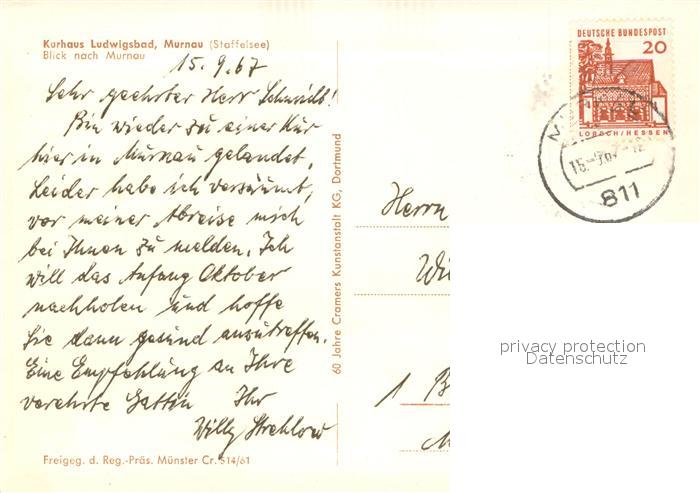 Kurhaus Ludwigsbad, Murnau (Staffelsee)
Blick nach Murnau
15.9.67
Sehr geehrter Herr Schmidt!
Bin wieder zu einer Kur
hier in Murnau gelandet.
Leider habe ich versäumt,
vor meiner Abreise mich
bei Ihnen zu melden. Ich
will das Anfang Oktober
nachholen und hoffe
Sie dann gesund anzutreffen.
Eine Empfehlung an Ihre
verehrte Gattin Ihr
Willy Strehlow
Freigeg. d. Reg.-Präs. Münster Cr. 514/61
60 Jahre Cramers Kunstanstalt KG, Dortmund
DEUTSCHE BUNDESPOST
20
LORSCH/HESSEN
811
Herrn
1 B
privacy protection
Datenschutz